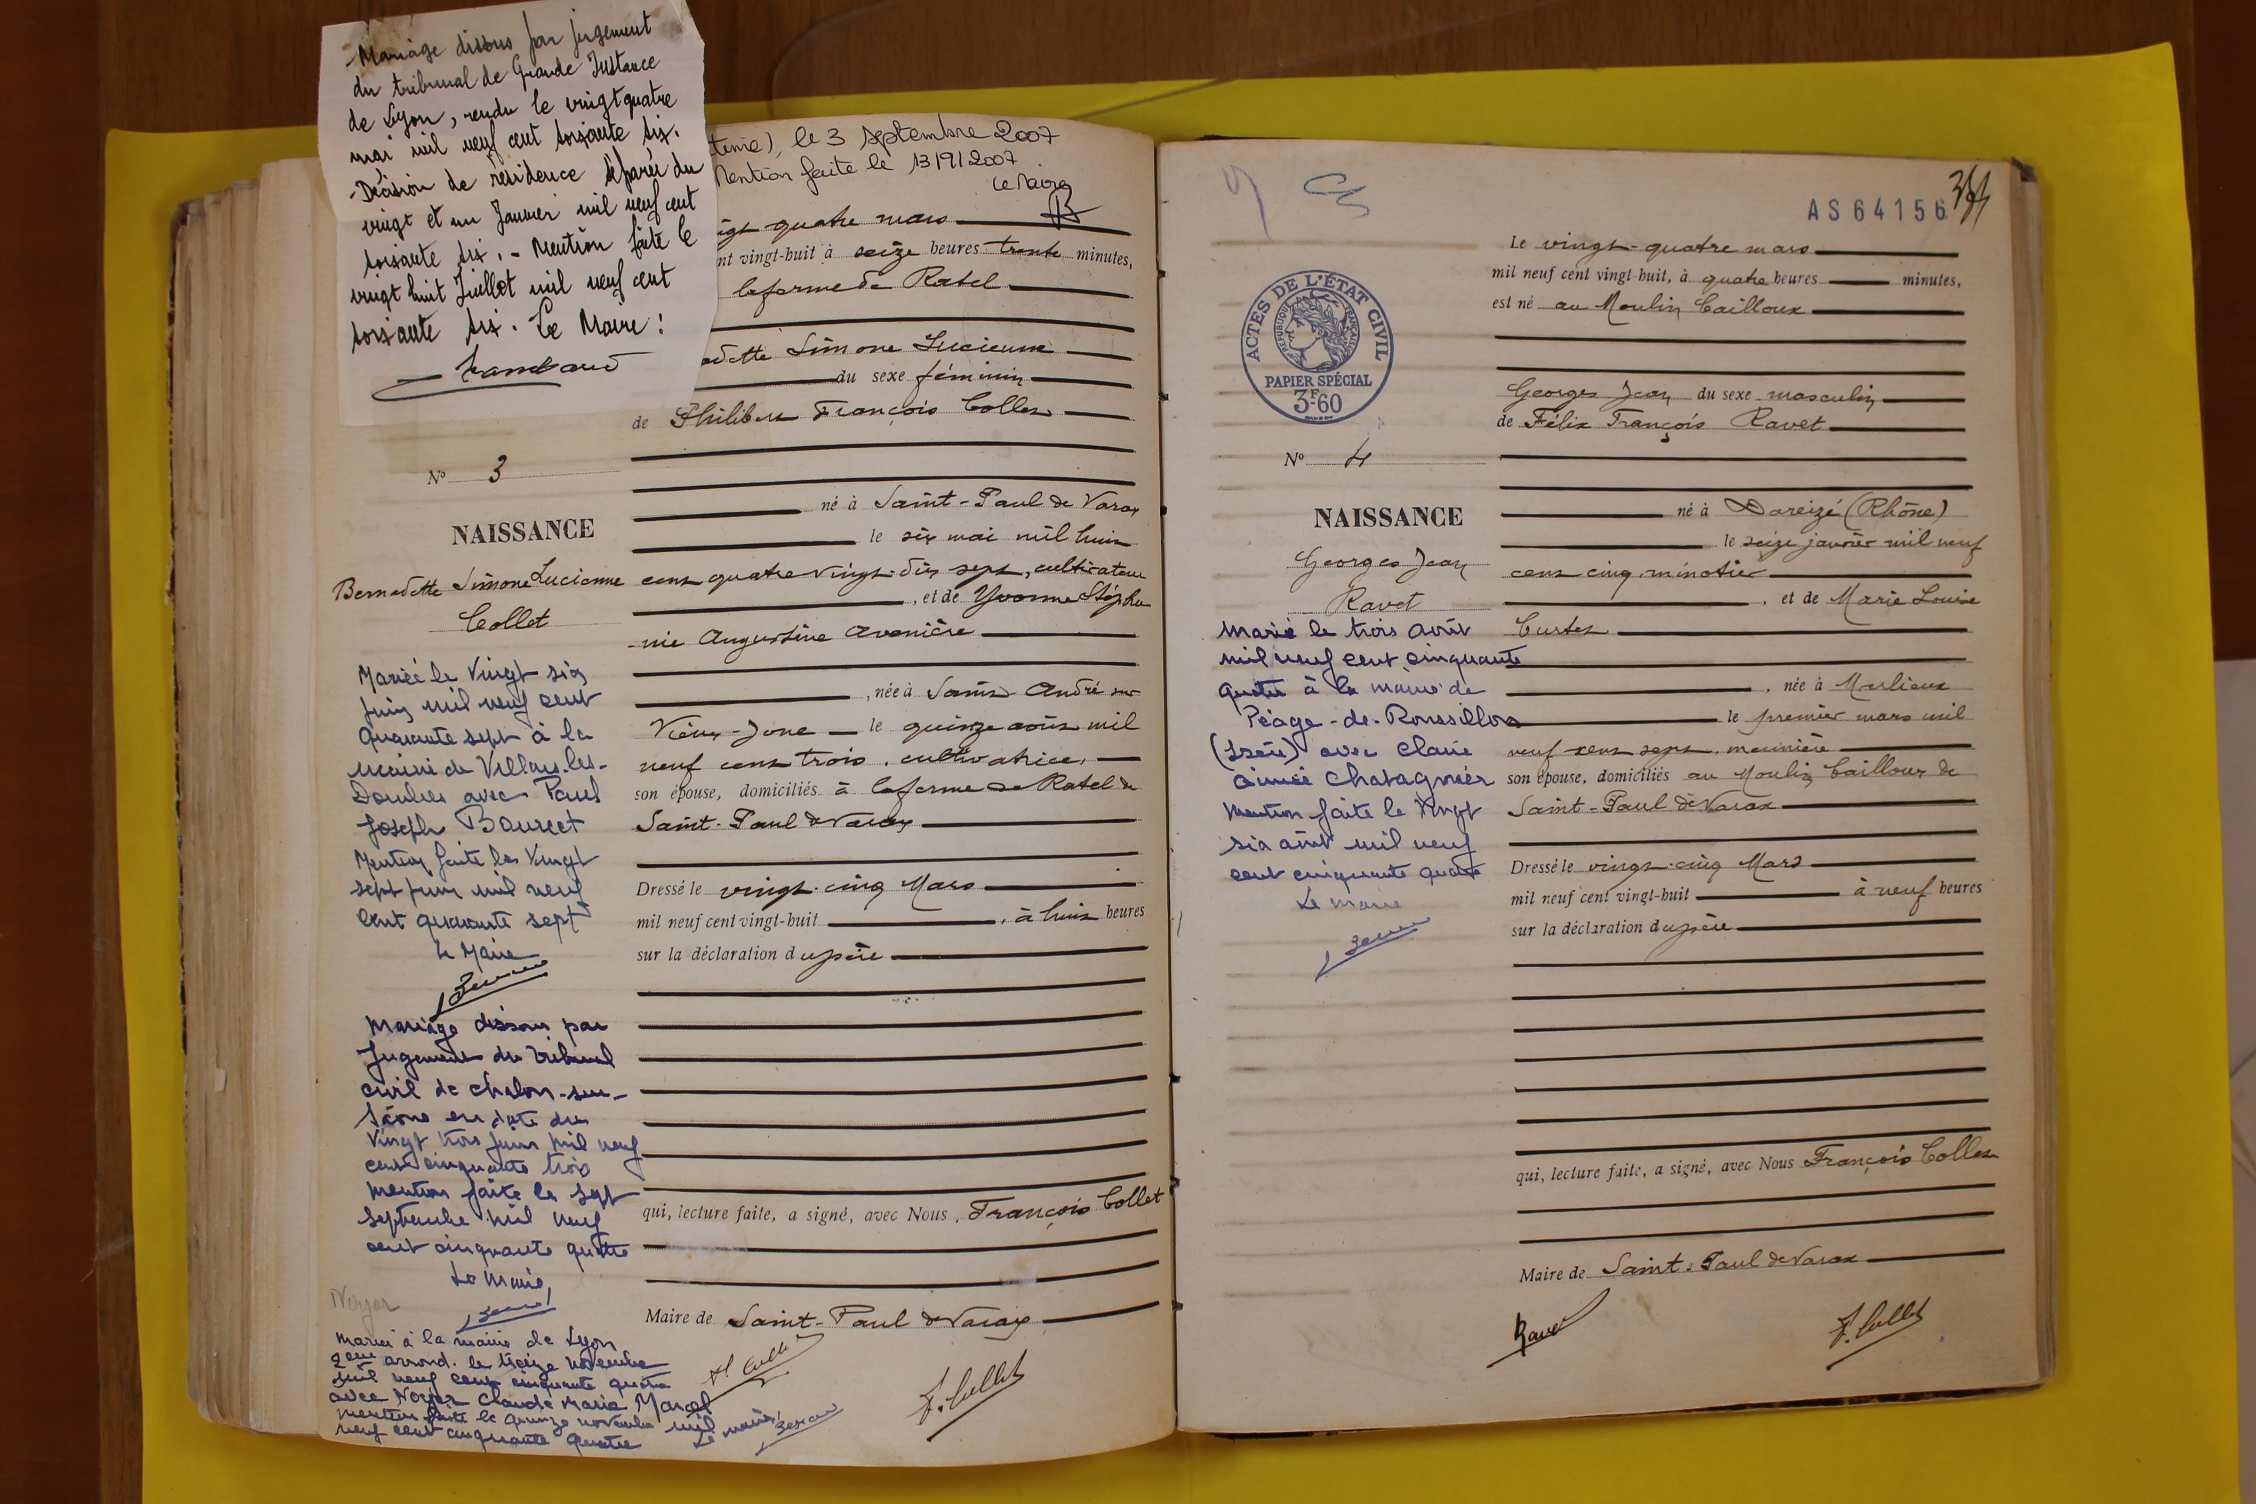 - Mariage dissous par jugement
du tribunal de Grande Instance
de Lyon, rendu le vingt quatre
mai mil neuf cent soixante six.
- Décision de résidence séparée du
vingt et un Janvier mil neuf cent
soixante six. - Mention faite le
vingt huit Juillet mil neuf cent
soixante six. Le Maire :
le 3 septembre 2007
Mention faite le 13/9/2007.
Le Maire
quatre mars
nt vingt-huit à seize heures trente minutes,
la ferme de Ratel
Simone Lucienne
du sexe féminin
de Philibert François Collet
N° 3
né à Saint-Paul de Varax
NAISSANCE
le six mai mil huit
Bernadette Simone Lucienne
Collet
cent quatre vingt-dix sept, cultivateur
, et de Yvonne Stépha
nie Augustine Avenière
, née à Saint André sur
Vieux-Jonc le quinze août mil
neuf cent trois, cultivatrice,
son épouse, domiciliés à la ferme de Ratel de
Saint-Paul de Varax
Dressé le vingt-cinq Mars
mil neuf cent vingt-huit , à huit heures
sur la déclaration du père
qui, lecture faite, a signé, avec Nous, François Collet
Maire de Saint-Paul de Varax
F. Collet
Mariée le Vingt six
juin mil neuf cent
quarante sept à la
mairie de Villars-les-
Dombes avec Paul
Joseph Bourcet
Mention faite le Vingt
sept juin mil neuf
cent quarante sept
Le Maire
Mariage dissous par
Jugement du Tribunal
civil de Chalon-sur-
Saône en date du
Vingt trois juin mil neuf
cent cinquante trois
Mention faite le sept
Septembre mil neuf
cent cinquante quatre
Le Maire,
Noyer
Mariée à la mairie de Lyon
2eme arrond. le treize novembre
mil neuf cent cinquante quatre
avec Noyer Claude Marie Marcel
mention faite le quinze novembre mil
neuf cent cinquante quatre
Le maire,
AS 64156
Le vingt-quatre mars
mil neuf cent vingt-huit, à quatre heures minutes,
est né au Moulin Cailloux
ACTES DE L'ÉTAT CIVIL
RÉPUBLIQUE FRANÇAISE
PAPIER SPÉCIAL
3F60
Georges Jean du sexe masculin
de Félix François Ravet
N° 4
né à Dareizé (Rhône)
NAISSANCE
le seize janvier mil neuf
Georges Jean
Ravet
cent cinq, minotier
, et de Marie Louise
Curtet
, née à Marlieux
le premier mars mil
neuf cent sept, meunière
son épouse, domiciliés au Moulin Cailloux de
Saint-Paul de Varax
Dressé le vingt-cinq Mars
mil neuf cent vingt-huit à neuf heures
sur la déclaration du père
qui, lecture faite, a signé, avec Nous François Collet
Maire de Saint-Paul de Varax
Ravet
F. Collet
Marié le trois août
mil neuf cent cinquante
quatre à la mairie de
Péage-de-Roussillon
(Isère) avec Claire
Aimée Chatagnier
Mention faite le Vingt
six août mil neuf
cent cinquante quatre
Le maire